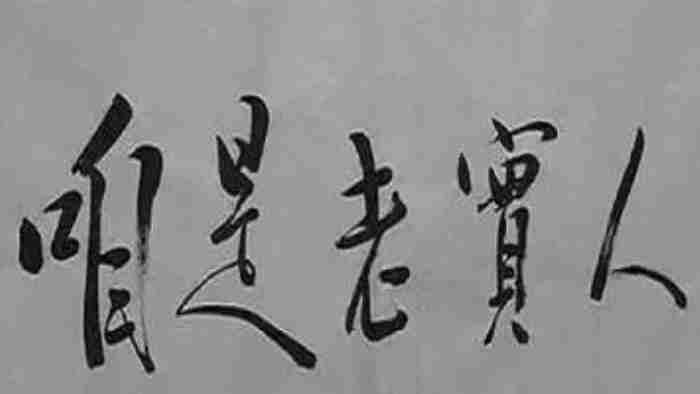 咱是老實人